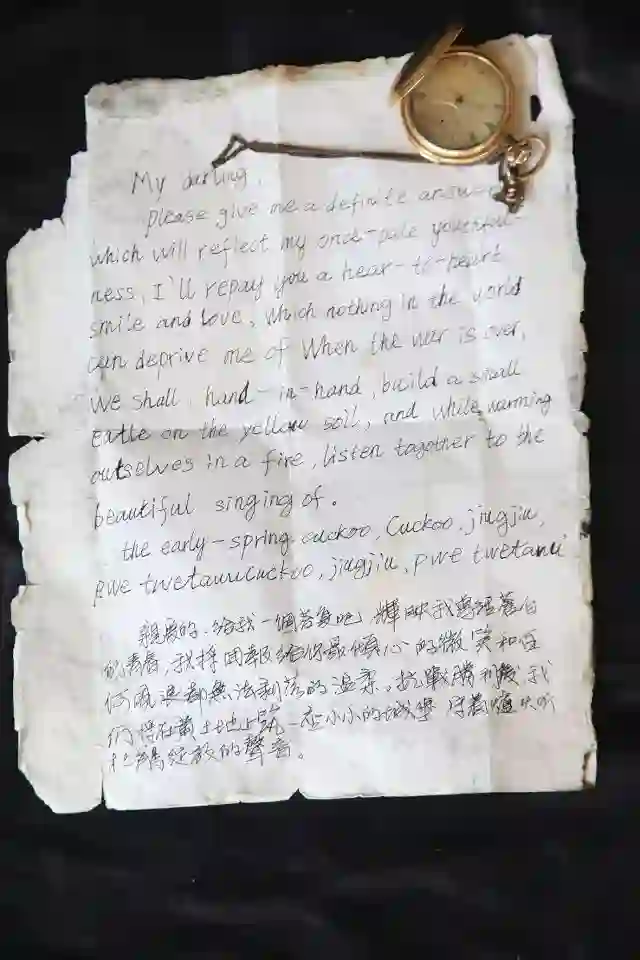 My darling,
please give me a definite answer
which will reflect my once-pale youthful
ness, I'll repay you a hear-to-heart
smile and love, which nothing in the world
can deprive me of When the war is over,
we shall, hand-in-hand, build a small
catle on the yellow soil, and while warming
outselves in a fire, listen tagother to the
beautiful singing of.
the early-spring cuckoo, Cuckoo, jiugjiu,
pwe twetauu cuckoo, jiugjiu, pwe twetauu
親愛的，給我一個答復吧 輝映我曾經蒼白
的青春，我將回報給你最傾心的微笑和任
何風浪都無法剥落的温柔。抗戰勝利後我
們將在黄土地上築一座小小的城堡 圍着爐火听
杜鵑綻放的聲音。